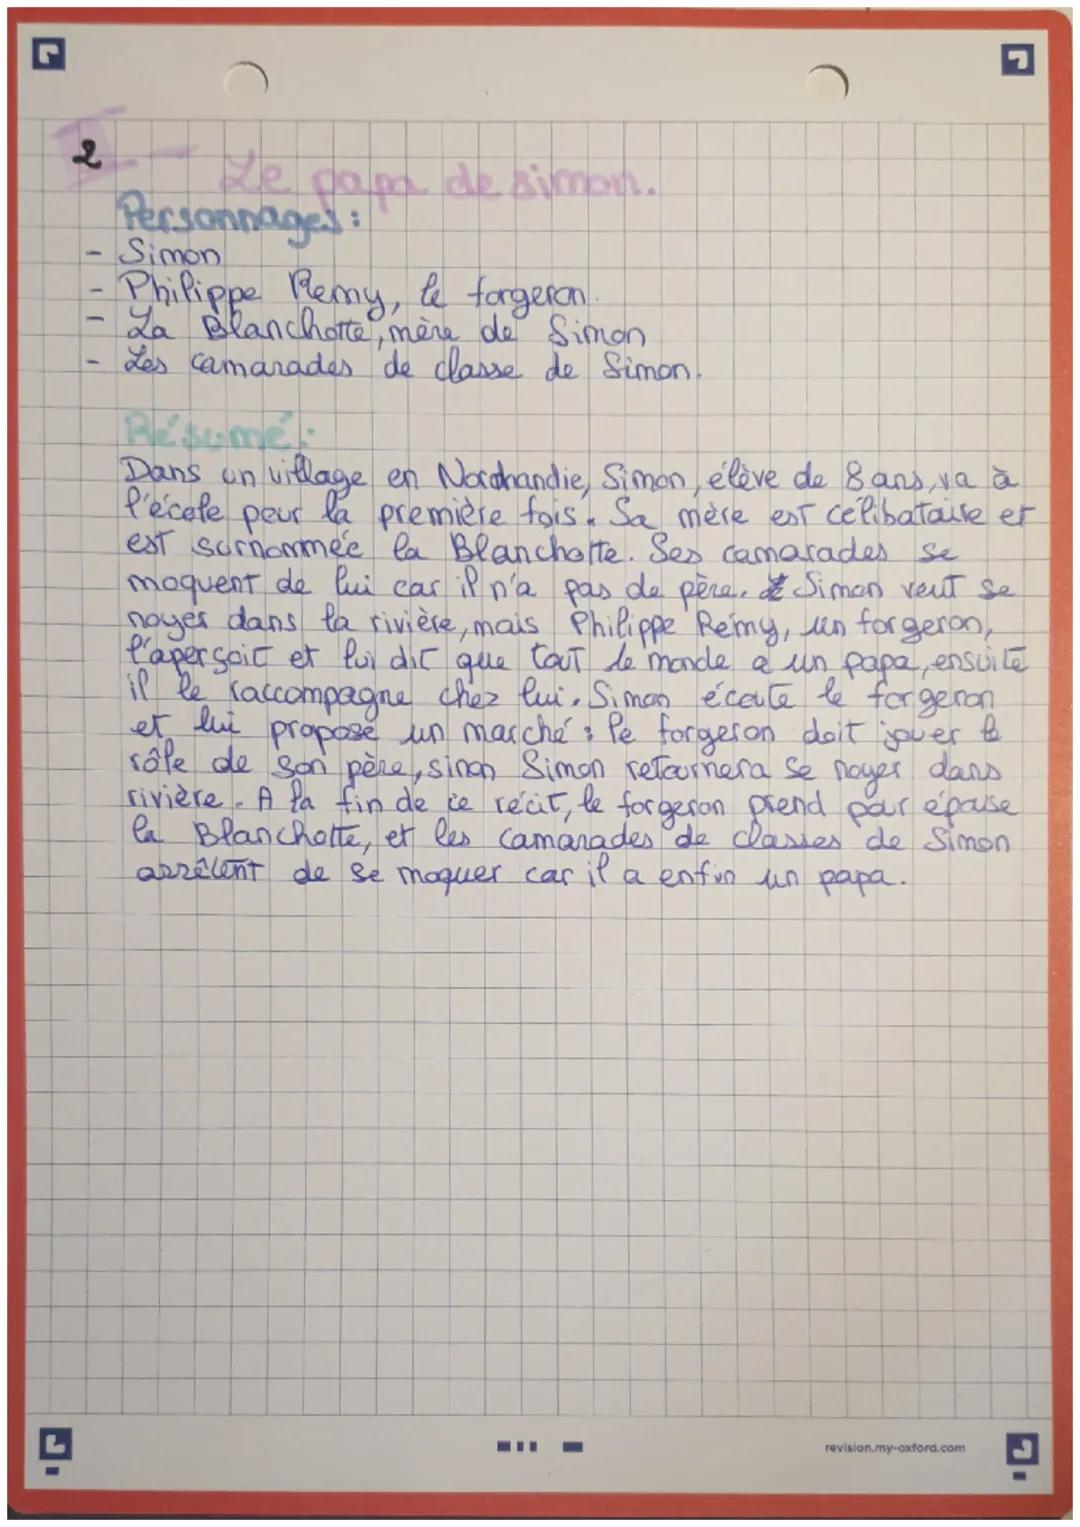 2
Le papa de simon.
Personnages :
- Simon
- Philippe Remy, le forgeron.
- La Blanchotte, mère de Simon
- Les camarades de classe de Simon.
Résumé :
Dans un village en Normandie, Simon, élève de 8 ans, va à
l'école pour la première fois. Sa mère est célibataire et
est surnommée la Blanchotte. Ses camarades se
moquent de lui car il n'a pas de père. Simon veut se
noyer dans la rivière, mais Philippe Rémy, un forgeron,
l'aperçoit et lui dit que tout le monde a un papa, ensuite
il le raccompagne chez lui. Simon écoute le forgeron
et lui propose un marché : le forgeron doit jouer le
rôle de son père, sinon Simon retournera se noyer dans
rivière. A la fin de ce récit, le forgeron prend pour épouse
la Blanchotte, et les camarades de classes de Simon
arrêtent de se moquer car il a enfin un papa.
revision.my-oxford.com